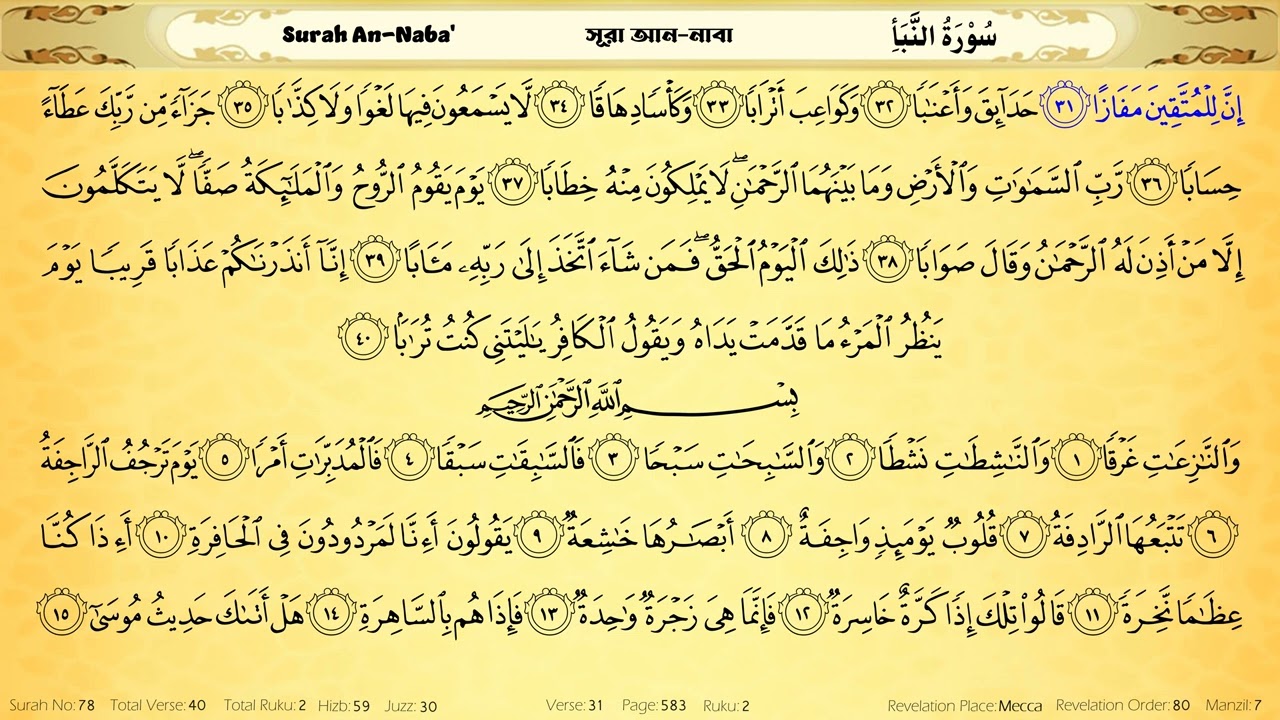 Surah An-Naba' সূরা আন-নাবা سُوْرَةُ النَّبَأِ
إِنَّ لِلْمُتَّقِينَ مَفَازًا ٣١ حَدَآئِقَ وَأَعْنَٰبًا ٣٢ وَكَوَاعِبَ أَتْرَابًا ٣٣ وَكَأْسًا دِهَاقًا ٣٤ لَّا يَسْمَعُونَ فِيهَا لَغْوًا وَلَا كِذَّٰبًا ٣٥ جَزَآءً مِّن رَّبِّكَ عَطَآءً
حِسَابًا ٣٦ رَّبِّ ٱلسَّمَٰوَٰتِ وَٱلْأَرْضِ وَمَا بَيْنَهُمَا ٱلرَّحْمَٰنِۖ لَا يَمْلِكُونَ مِنْهُ خِطَابًا ٣٧ يَوْمَ يَقُومُ ٱلرُّوحُ وَٱلْمَلَٰٓئِكَةُ صَفًّاۖ لَّا يَتَكَلَّمُونَ
إِلَّا مَنْ أَذِنَ لَهُ ٱلرَّحْمَٰنُ وَقَالَ صَوَابًا ٣٨ ذَٰلِكَ ٱلْيَوْمُ ٱلْحَقُّۖ فَمَن شَآءَ ٱتَّخَذَ إِلَىٰ رَبِّهِۦ مَـَٔابًا ٣٩ إِنَّآ أَنذَرْنَٰكُمْ عَذَابًا قَرِيبًا يَوْمَ
يَنظُرُ ٱلْمَرْءُ مَا قَدَّمَتْ يَدَاهُ وَيَقُولُ ٱلْكَافِرُ يَٰلَيْتَنِى كُنتُ تُرَٰبًۢا ٤٠
بِسْمِ ٱللَّهِ ٱلرَّحْمَٰنِ ٱلرَّحِيمِ
وَٱلنَّٰزِعَٰتِ غَرْقًا ١ وَٱلنَّٰشِطَٰتِ نَشْطًا ٢ وَٱلسَّٰبِحَٰتِ سَبْحًا ٣ فَٱلسَّٰبِقَٰتِ سَبْقًا ٤ فَٱلْمُدَبِّرَٰتِ أَمْرًا ٥ يَوْمَ تَرْجُفُ ٱلرَّاجِفَةُ
٦ تَتْبَعُهَا ٱلرَّادِفَةُ ٧ قُلُوبٌ يَوْمَئِذٍ وَاجِفَةٌ ٨ أَبْصَٰرُهَا خَٰشِعَةٌ ٩ يَقُولُونَ أَءِنَّا لَمَرْدُودُونَ فِى ٱلْحَافِرَةِ ١٠ أَءِذَا كُنَّا
عِظَٰمًا نَّخِرَةً ١١ قَالُوا۟ تِلْكَ إِذًا كَرَّةٌ خَاسِرَةٌ ١٢ فَإِنَّمَا هِىَ زَجْرَةٌ وَٰحِدَةٌ ١٣ فَإِذَا هُم بِٱلسَّاهِرَةِ ١٤ هَلْ أَتَىٰكَ حَدِيثُ مُوسَىٰٓ ١٥
Surah No: 78 Total Verse: 40 Total Ruku: 2 Hizb: 59 Juzz: 30 Verse: 31 Page: 583 Ruku: 2 Revelation Place: Mecca Revelation Order: 80 Manzil: 7